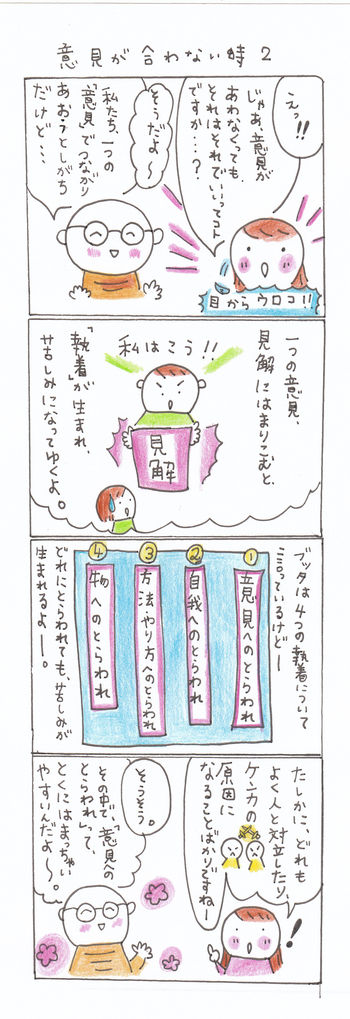 意見が合わない時 2
えっ!!
じゃあ、意見が
あわなくても、
それはそれでいいってコト
ですか・・・?
目からウロコ!!
そうだよ〜
私たち、一つの
「意見」でつながり
あおうとしがち
だけど・・・
一つの意見、
見解にはまりこむと
私はこう!!
見解
「執着」が生まれ、
苦しみになってゆくよ。
ブッタは4つの執着について
言っているけどー
①
意見へのとらわれ
②
自我へのとらわれ
③
方法・やり方へのとらわれ
④
物へのとらわれ
どれにとらわれても、苦しみが
生まれるよー。
たしかに、どれも
よく人と対立したり、
ケンカの
原因に
なることばかりですねー
!
そうそう。
その中で、「意見への
とらわれ」って、
とくにはまっちゃい
やすいんだよ〜。